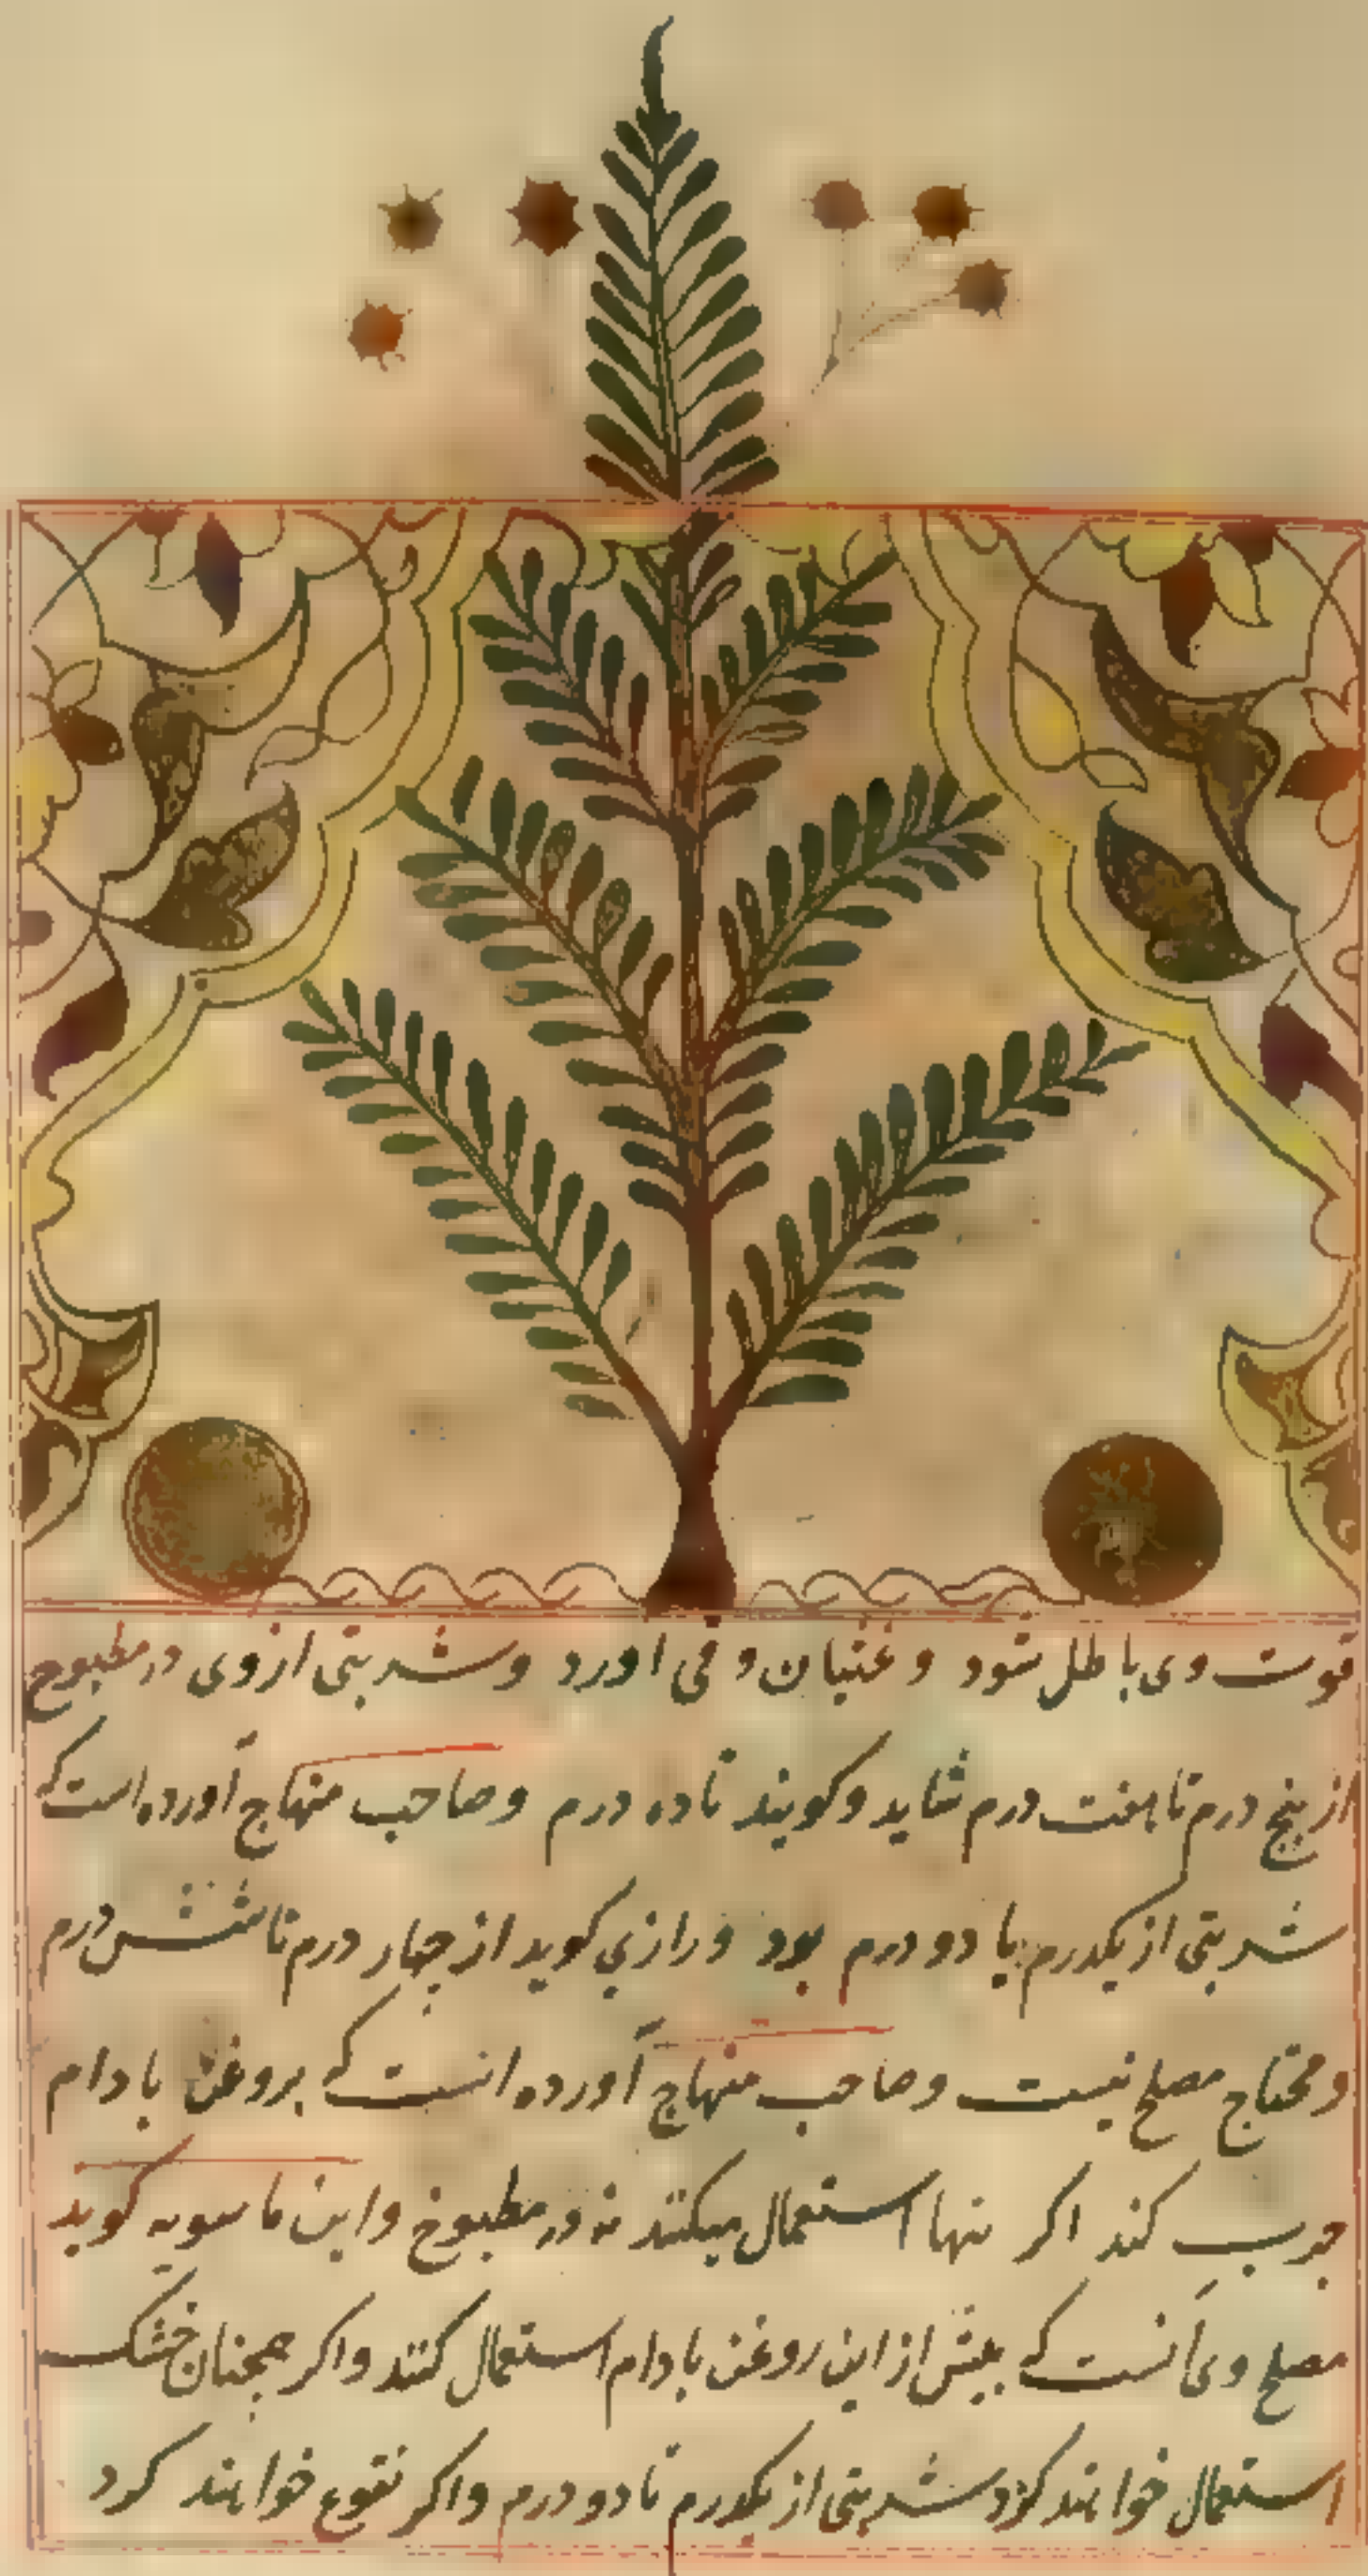 قوت وی باطل شود و غثیان و قی اورد و شربتی ازوی در مطبوخ
از پنج درم تا هفت درم شاید و کویند تا ده درم و صاحب منهاج آورده است که
شربتی از یکدرم یا دو درم بود و رازی کوید از چهار درم تا شش درم
و محتاج مصلح نیست و صاحب منهاج آورده است که بروغن بادام
چرب کند اکر تنها استعمال میکنند نه در مطبوخ و ابن ماسویه کوید
مصلح وی آنست که پیش از این روغن بادام استعمال کنند و اکر همچنان خشک
استعمال خواهند کرد شربتی از یکدرم تا دو درم و اکر نقوع خواهند کرد